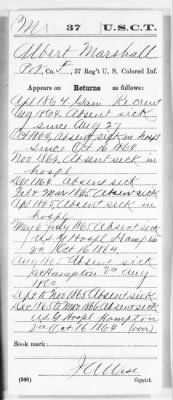 M 37 U.S.C.T.
Albert Marshall
Pvt, Co. F, 37 Reg't U. S. Colored Inf.
Appears on Returns as follows:
Apl 1864. Gain Recruit
Aug 1864, Absent sick
since Aug 27
Oct 1864, Absent sick in hospl
Since Oct 16 1864
Nov 1864, Absent sick in
hospl
Dec 1864 absent sick
Feb & Mar 1865 Absent sick
Apl 1865, Absent sick in
hospl
May & July 1865 Absent sick
U.S.G. Hospl Hampton
Va Oct 16 1864.
Aug 1865 Absent sick
at Hampton Va Aug
Sept to Nov 1865 Absent sick
Dec 1865 to Mar 1866 Absent sick
U.S. G Hospl Hampton
Va Oct 16 1864 (over)
Book mark:
(546) Copyist.